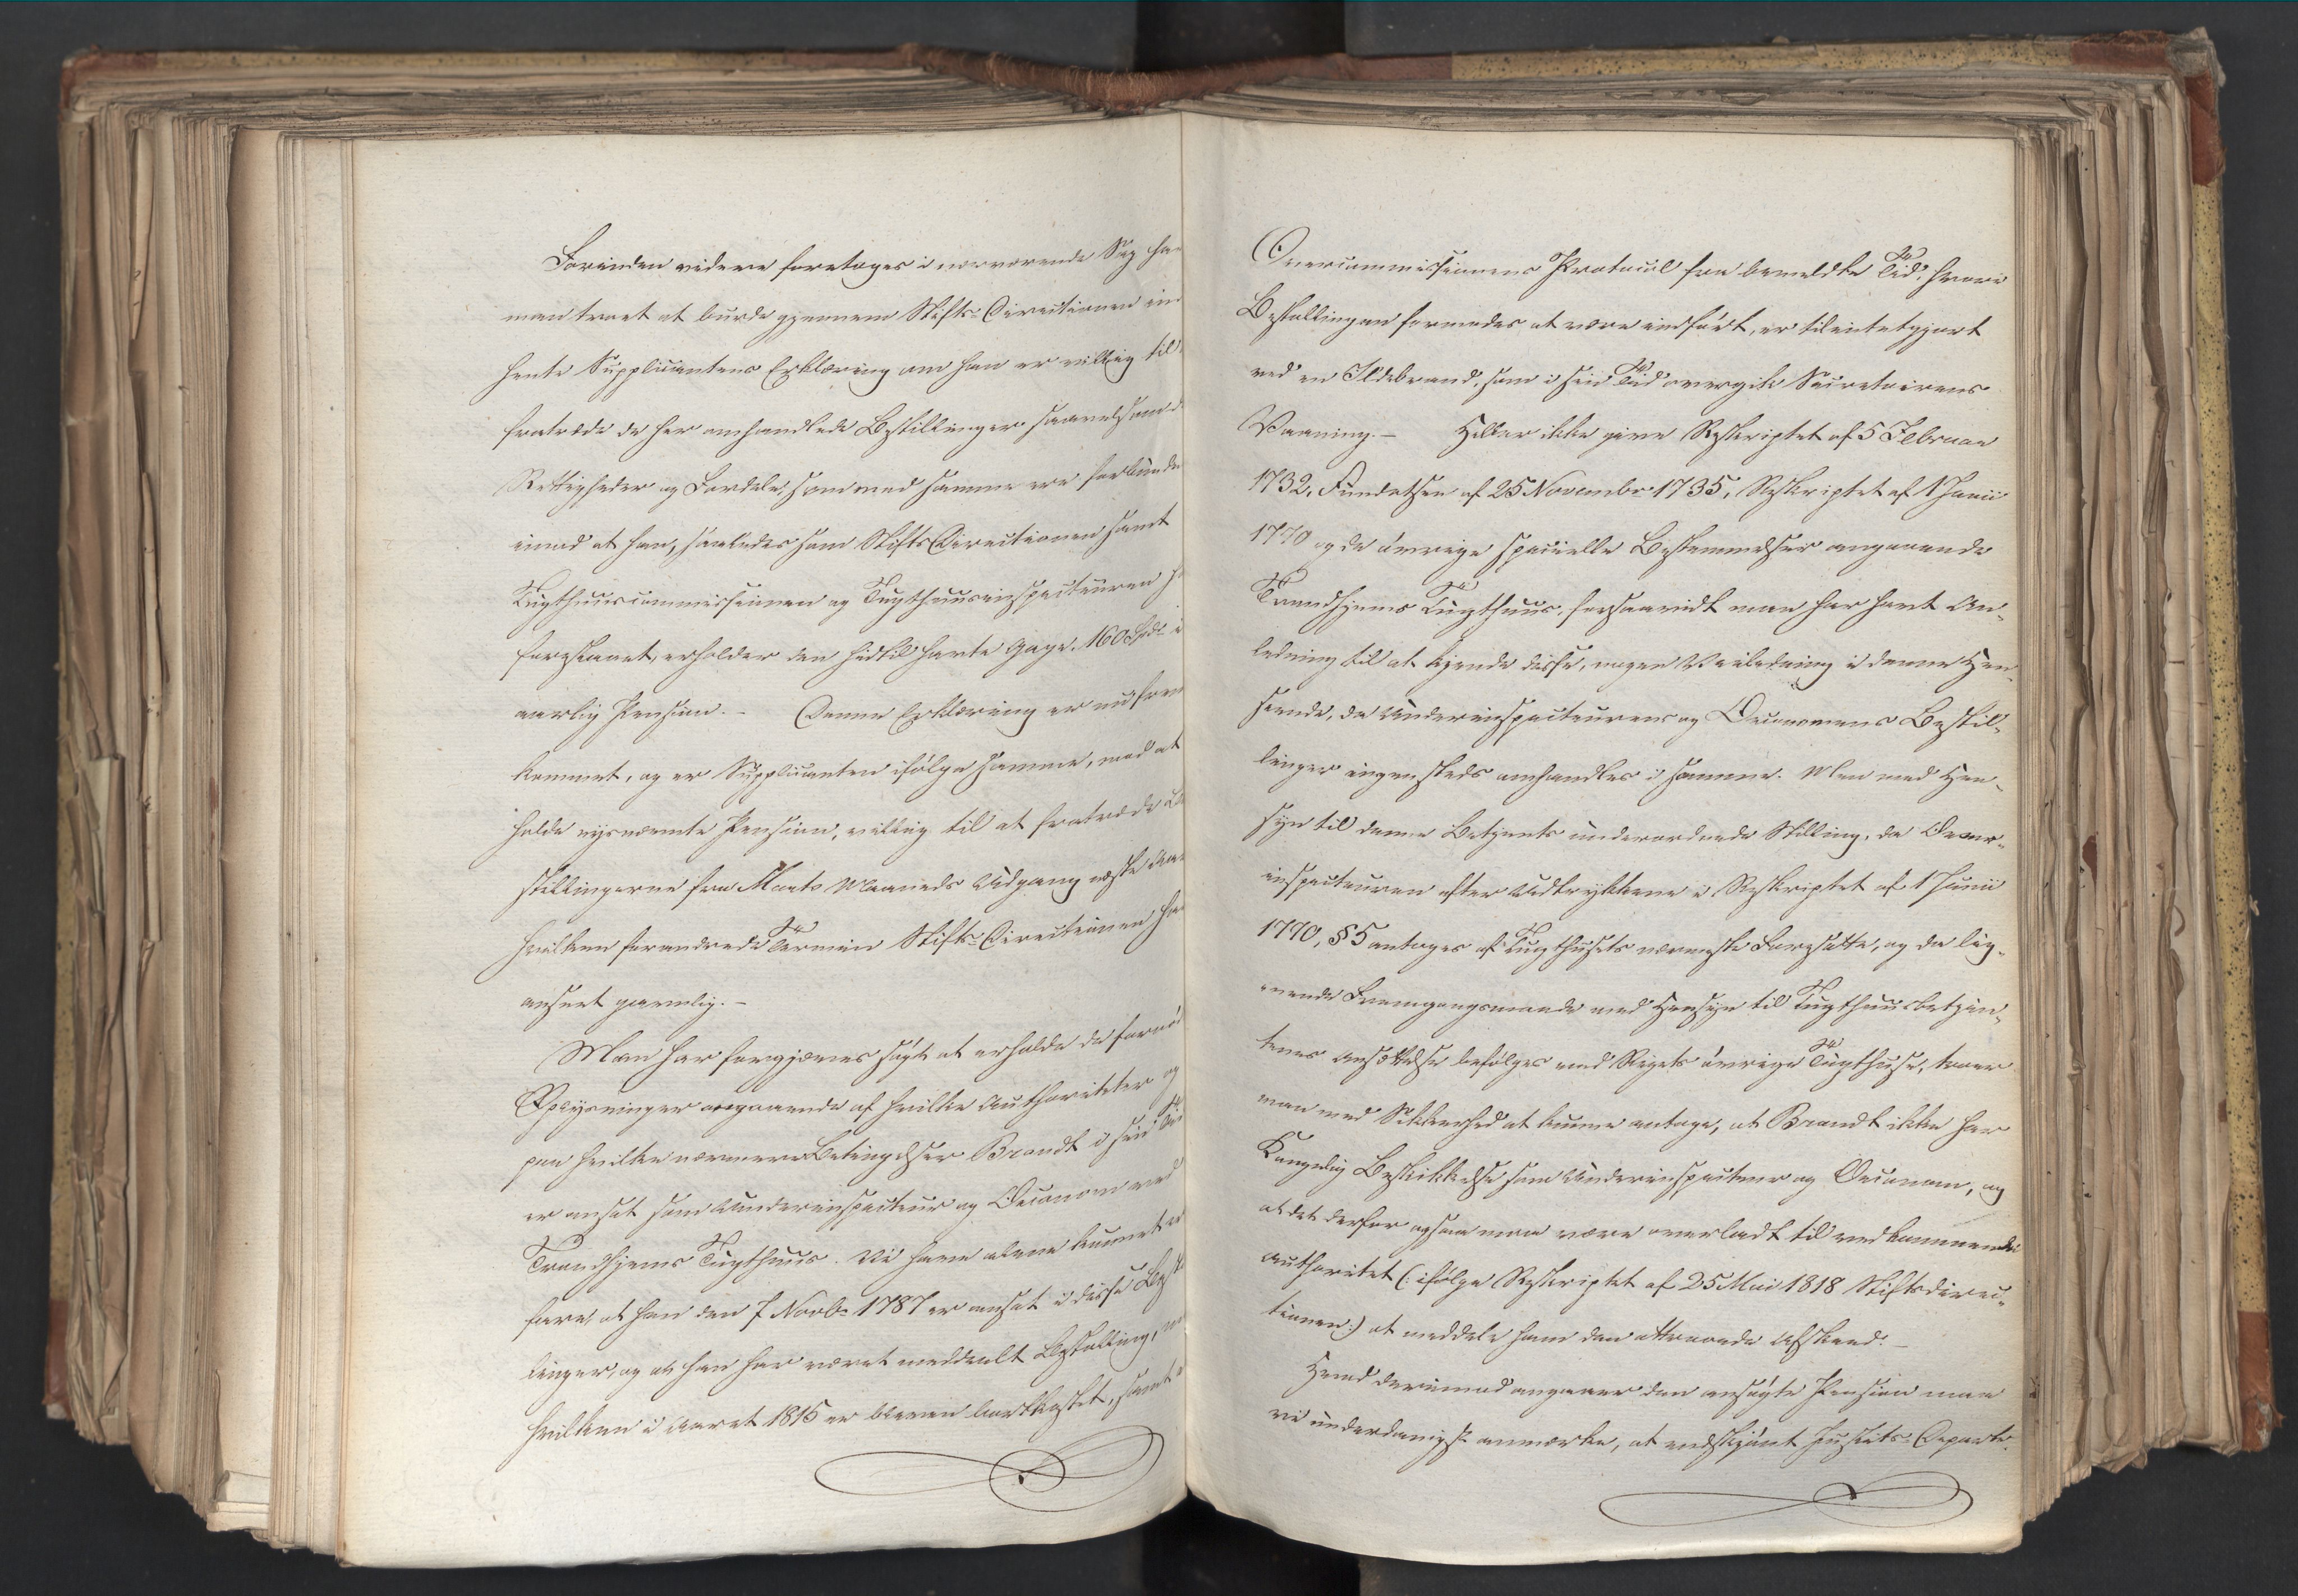 Forinden videre foretages i nærværende Sag ha
man troet at burde gjennem Stifts-Directionen ind
hente Supplicantens Erklæring om han er villig til
fratræde de her omhandlede Bestillinger saavelsom d
Rettigheder og Fordele, som med samme ere forbundn
imod at han, saaledes som StiftsDirectionen samt
Tugthuuscommissionen og Tugthuusinspecteuren h
foreslaaet, erholder den hidtil havte Gage, 160 Spdr i
aarlig Pension. - Denne Erklæring er nu frem
kommet, og er Supplicanten ifølge samme, mod at
holde nysnævnte Pension, villig til at fratræde Be
stillingerne fra Marts Maaneds Udgang næste Aar
hvilken forandrede Termin Stifts-Directionen har
anseet gavnlig. -
Man har forgjæves søgt at erholde de fornød
Oplysninger angaaende af hvilke Authoriteter og
paa hvilke nærmere Betingelser Brandt i sin Tid
er ansat som Underinspecteur og Oeconom ved
Trondhjems Tugthuus. Vi have alene kunnet er
fare, at han den 7 Novbr 1787 er ansat i disse Bestil
linger, og at han har været meddeelt Bestalling, m
hvilken i Aaret 1815 er bleven bortkastet, samt a
Overcommissionens Protocol fra bemeldte Tid, hvori
Bestallingen formodes at være indført, er tilintetgjort
ved en Ildebrand, som i sin Tid overgik Secretairens
Vaaning. - Heller ikke give Reskriptet af 5 Februar
1732, Fundatsen af 25 Novembr 1735, Reskriptet af 1 Junii
1770 og de øvrige specielle Bestemmelser angaaende
Trondhjems Tugthuus, forsaavidt man har havt An-
ledning til at kjende disse, nogen Veiledning i denne Hen-
seende, da Underinspecteurens og Oeconomens Bestil-
linger ingensteds omhandles i samme. Men med Hen-
syn til denne Betjents underordnede Stilling, da Over-
inspecteuren efter Udtrykkene i Reskriptet af 1 Junii
1770, § 5 antages af Tugthusets nærmeste Foresatte, og da lig-
nende Fremgangsmaade med Hensyn til Tugthuusbetjen-
tenes Ansættelse befølges ved Rigets øvrige Tugthuse, troer
man med Sikkerhed at kunne antage, at Brandt ikke har
Kongelig Beskikkelse som Underinspecteur og Oeconom, og
at det derfor ogsaa maa være overladt til vedkommende
Authoritet (: ifølge Reskriptet af 25 Mai 1818 Stiftsdirec-
tionen :) at meddele ham den attraaede Afskeed. -
Hvad derimod angaaer den ansøgte Pension maa
vi underdanigst anmærke, at endskjønt Justits-Departe-